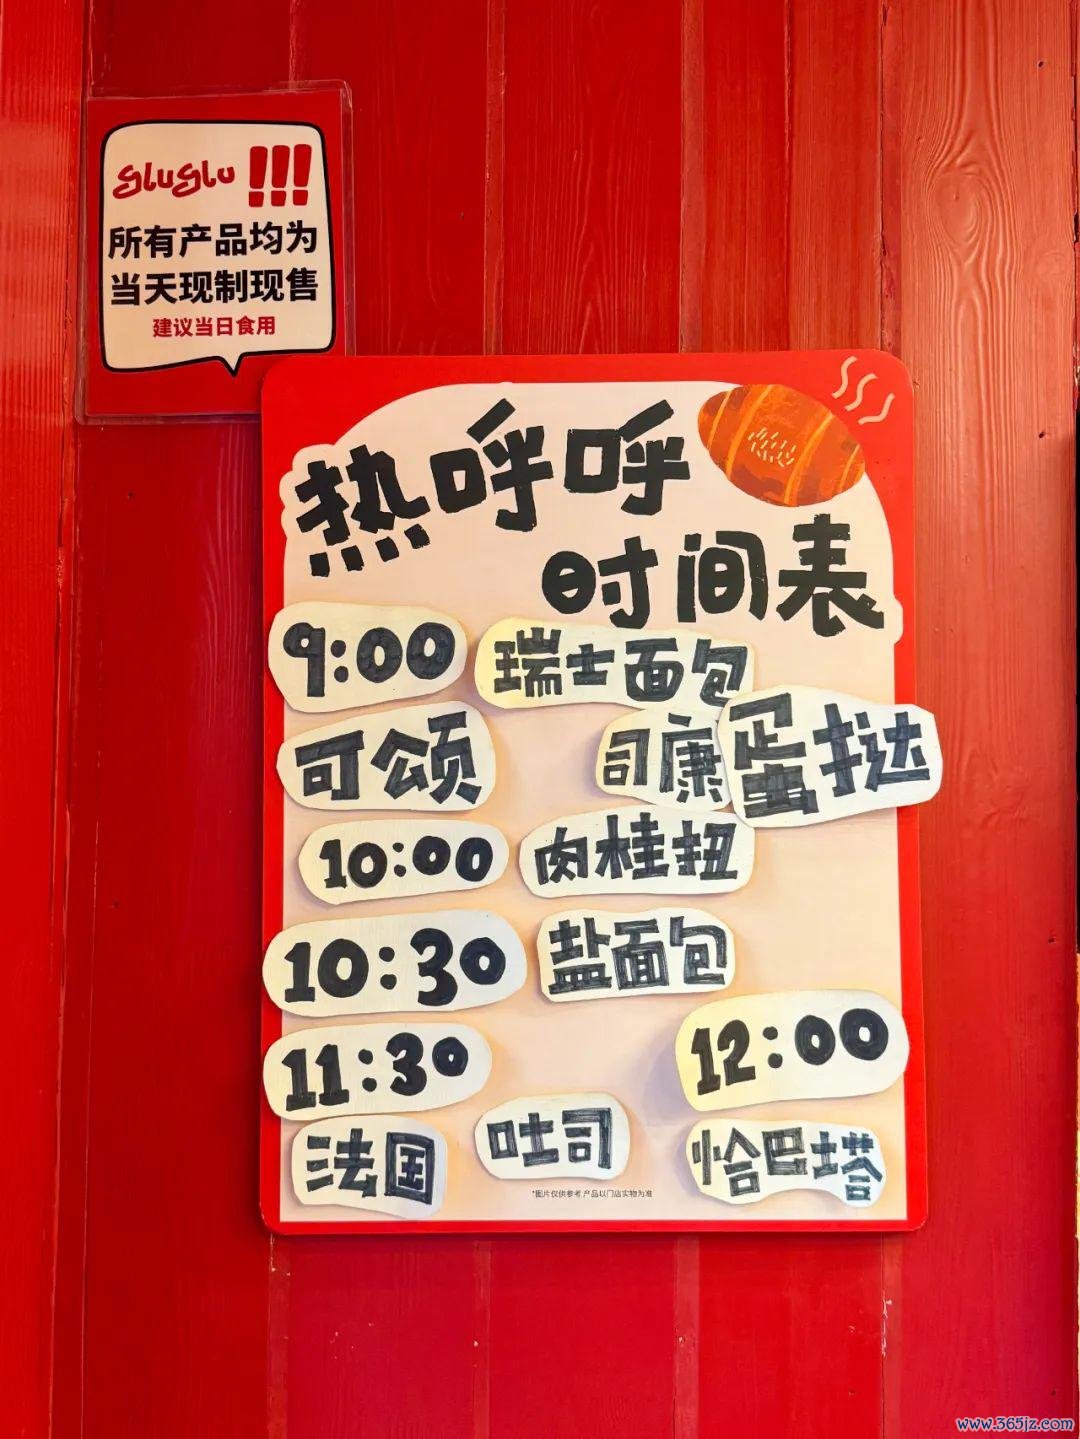 gluglu!!!
所有产品均为
当天现制现售
建议当日食用
热呼呼
时间表
9:00 瑞士面包
可颂 司康 蛋挞
10:00 肉桂扭
10:30 盐面包
11:30 12:00
法国 吐司 恰巴塔
*图片仅供参考,产品以门店实物为准
www.365jz.com